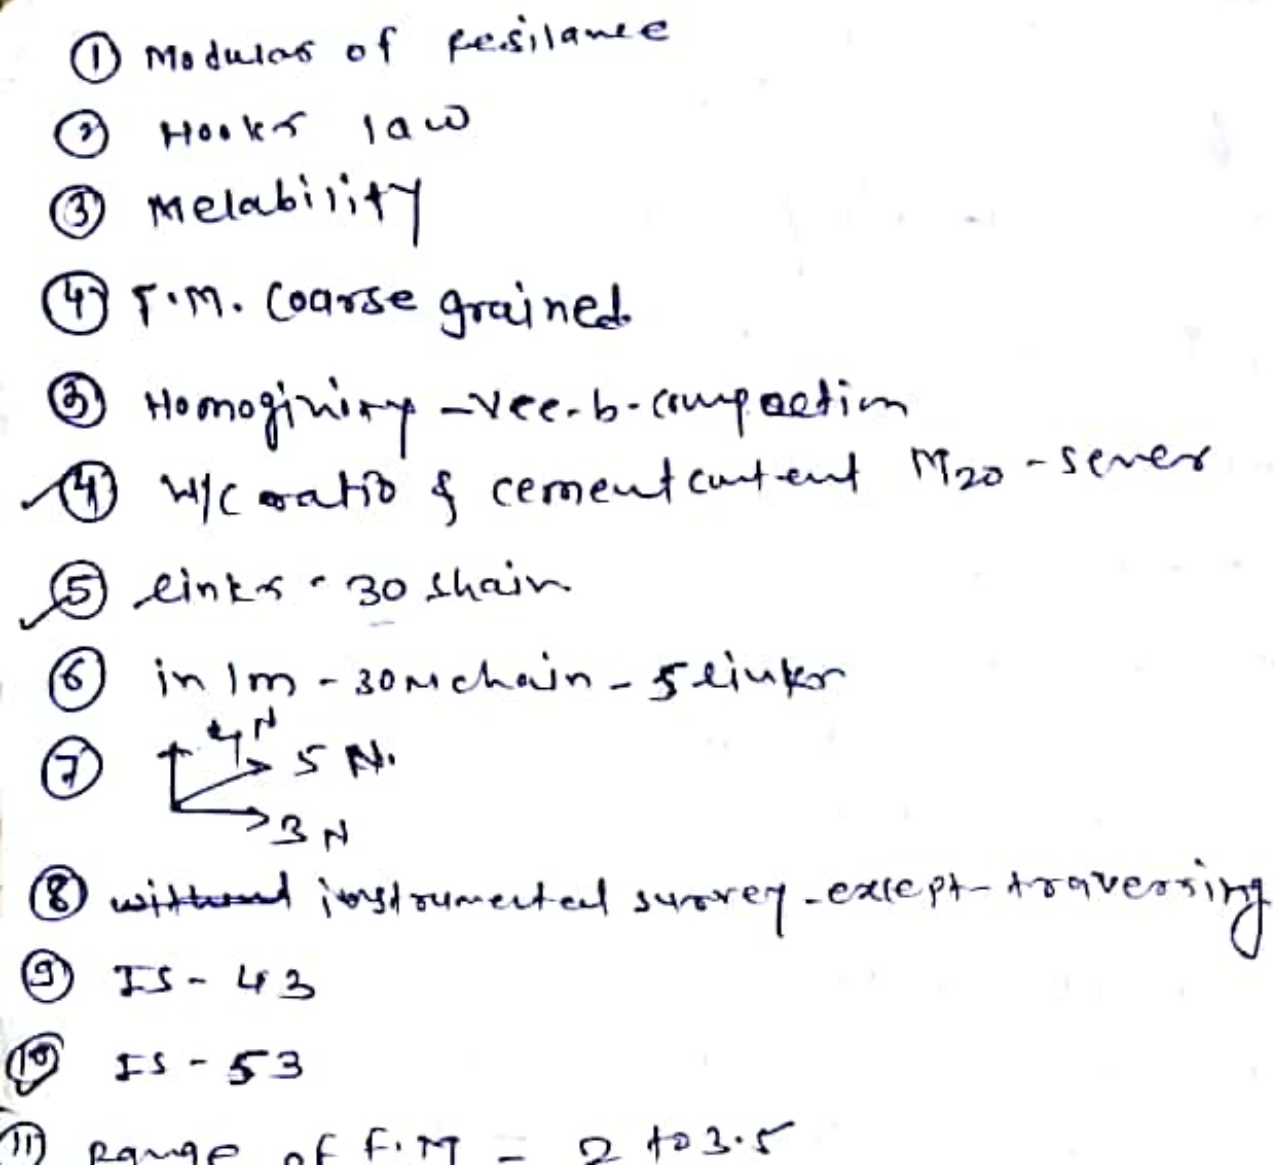 ① Modulas of Resilance
② Hooks law
③ Melability
④ F.M. Coarse grained
③ Homoginity - Vee-b-compaction
④ W/C ratio & cement content M20 - sever
⑤ links - 30 chain
⑥ in 1m - 30m chain - 5 links
⑦ 4N 5 N.
3 N
⑧ without instrumental survey - except - traversing
⑨ IS - 43
⑩ IS - 53
⑪ Range of F.M - 2 to 3.5